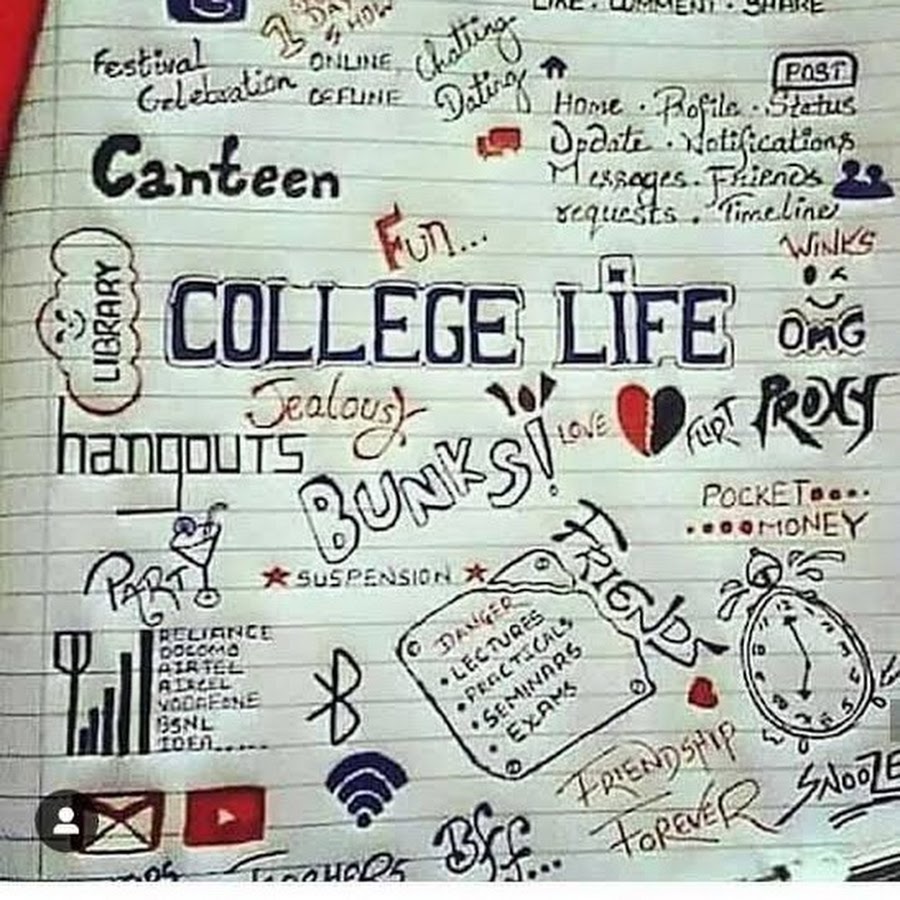 LIKE . COMMENT . SHARE
1st DAY
SHOW
Festival
Celebration
ONLINE
OFFLINE
Chatting
Dating
POST
Home . Profile . Status
Update . Notifications
Messages . Friends
requests . Timeline
Canteen
Fun...
WINKS
LIBRARY
COLLEGE LIFE
OMG
Jealousy
LOVE
FLIRT
PROXY
hangouts
BUNKS!
POCKET....
....MONEY
FRIENDS
PARTY
SUSPENSION
DANGER
• LECTURES
• PRACTICALS
• SEMINARS
• EXAMS
RELIANCE
DOCOMO
AIRTEL
AIRCEL
VODAFONE
BSNL
IDEA......
12
FRIENDSHIP
FOREVER
SNOOZE
Bff...